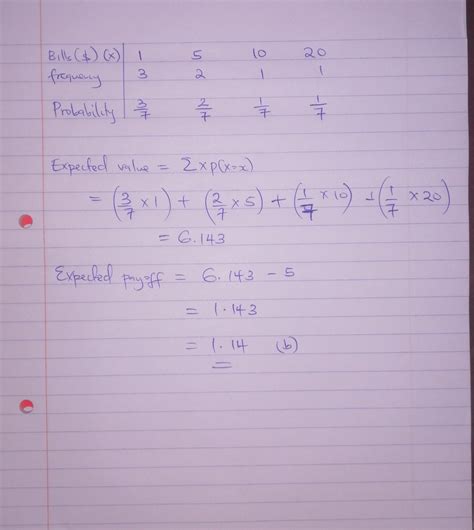 Bills ($) (x) | 1 5 10 20
frequency | 3 2 1 1
Probability | 3/7 2/7 1/7 1/7
Expected value = Σxp(x=x)
= (3/7 × 1) + (2/7 × 5) + (1/7 × 10) + (1/7 × 20)
= 6.143
Expected payoff = 6.143 - 5
= 1.143
= 1.14 (b)